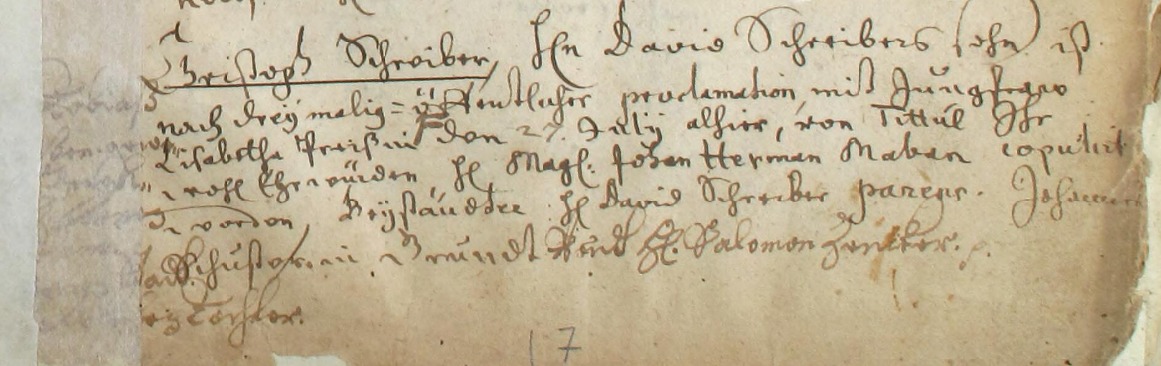 Christoph Schreiber, Hn David Schreibers sohn ist
nach dreymalig= öffentlicher proclamation, mit Jungfraw
Elisabetha den 27. July alhier, von Tittul Ihr
wohl Ehrwürden H Mag. Johan Herman copulirt
worden, Beystände H David Schreiber parens. Johannes
Schuster in H. Salomon
Tochter.
17